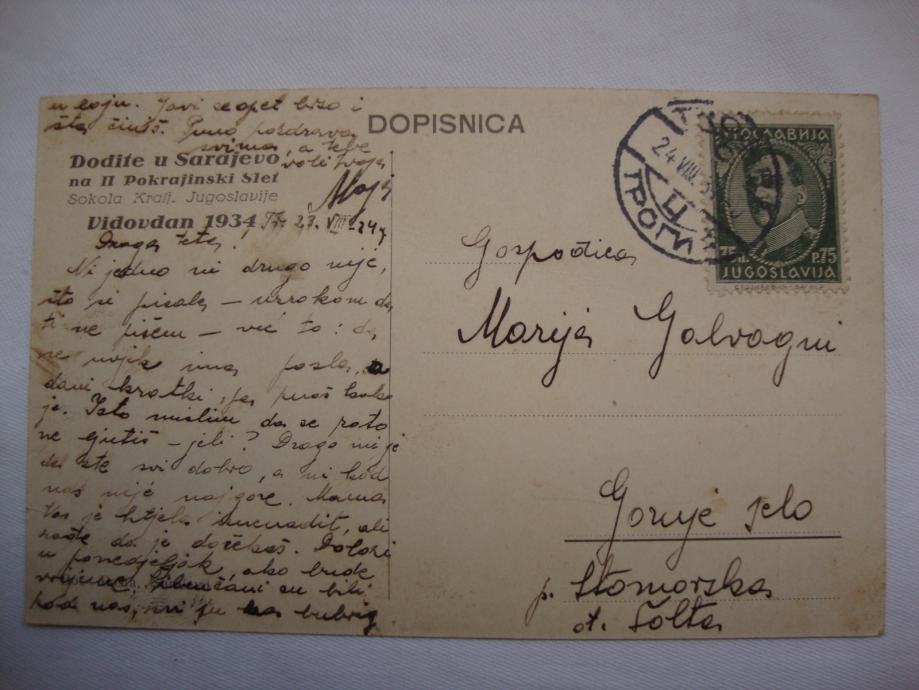 u soju. Javi se opet brzo i
šta činiš. Puno pozdrava
svima, a tebe
voli tvoja
Maja
DOPISNICA
Dođite u Sarajevo
na II Pokrajinski Slet
Sokola Kralj. Jugoslavije
Vidovdan 1934
Tr. 23. VIII-34
Draga teta!
Ni jedno ni drugo nije,
što si pisala – uzrokom da
ti ne pišem – već to: da
se uvjek ima posla, a
dani kratki, pa puš kako
je. Isto mislim da se zato
ne ljutiš – jeli? Drago mi je
da ste svi dobro, a ni kod
nas nije najgore. Mama
Vas je htjela iznenadit, ali
rađe da je dočekaš. Dolazi
u ponedjeljak, ako bude
su bili
kod nas,
24 VIII 3
ТРОГИР
ЈУГОСЛАВИЈА
75 P. P. 75
JUGOSLAVIJA
Gospođica
Marija Galvagni
Gornje selo
p. Stomorska
o. Šolta